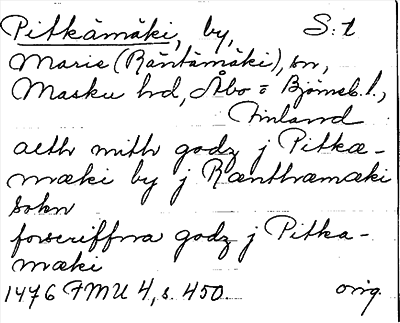 Pitkämäki, by, S:t
Marie (Räntämäki), sn,
Masku hd, Åbo = Björneb. l.,
Finland
aeth mith godz j Pitkæ-
mæki by j Rænthæmæki
sokn
forscriffna godz j Pitka-
mæki
1476 FMU 4, s. 450. orig.